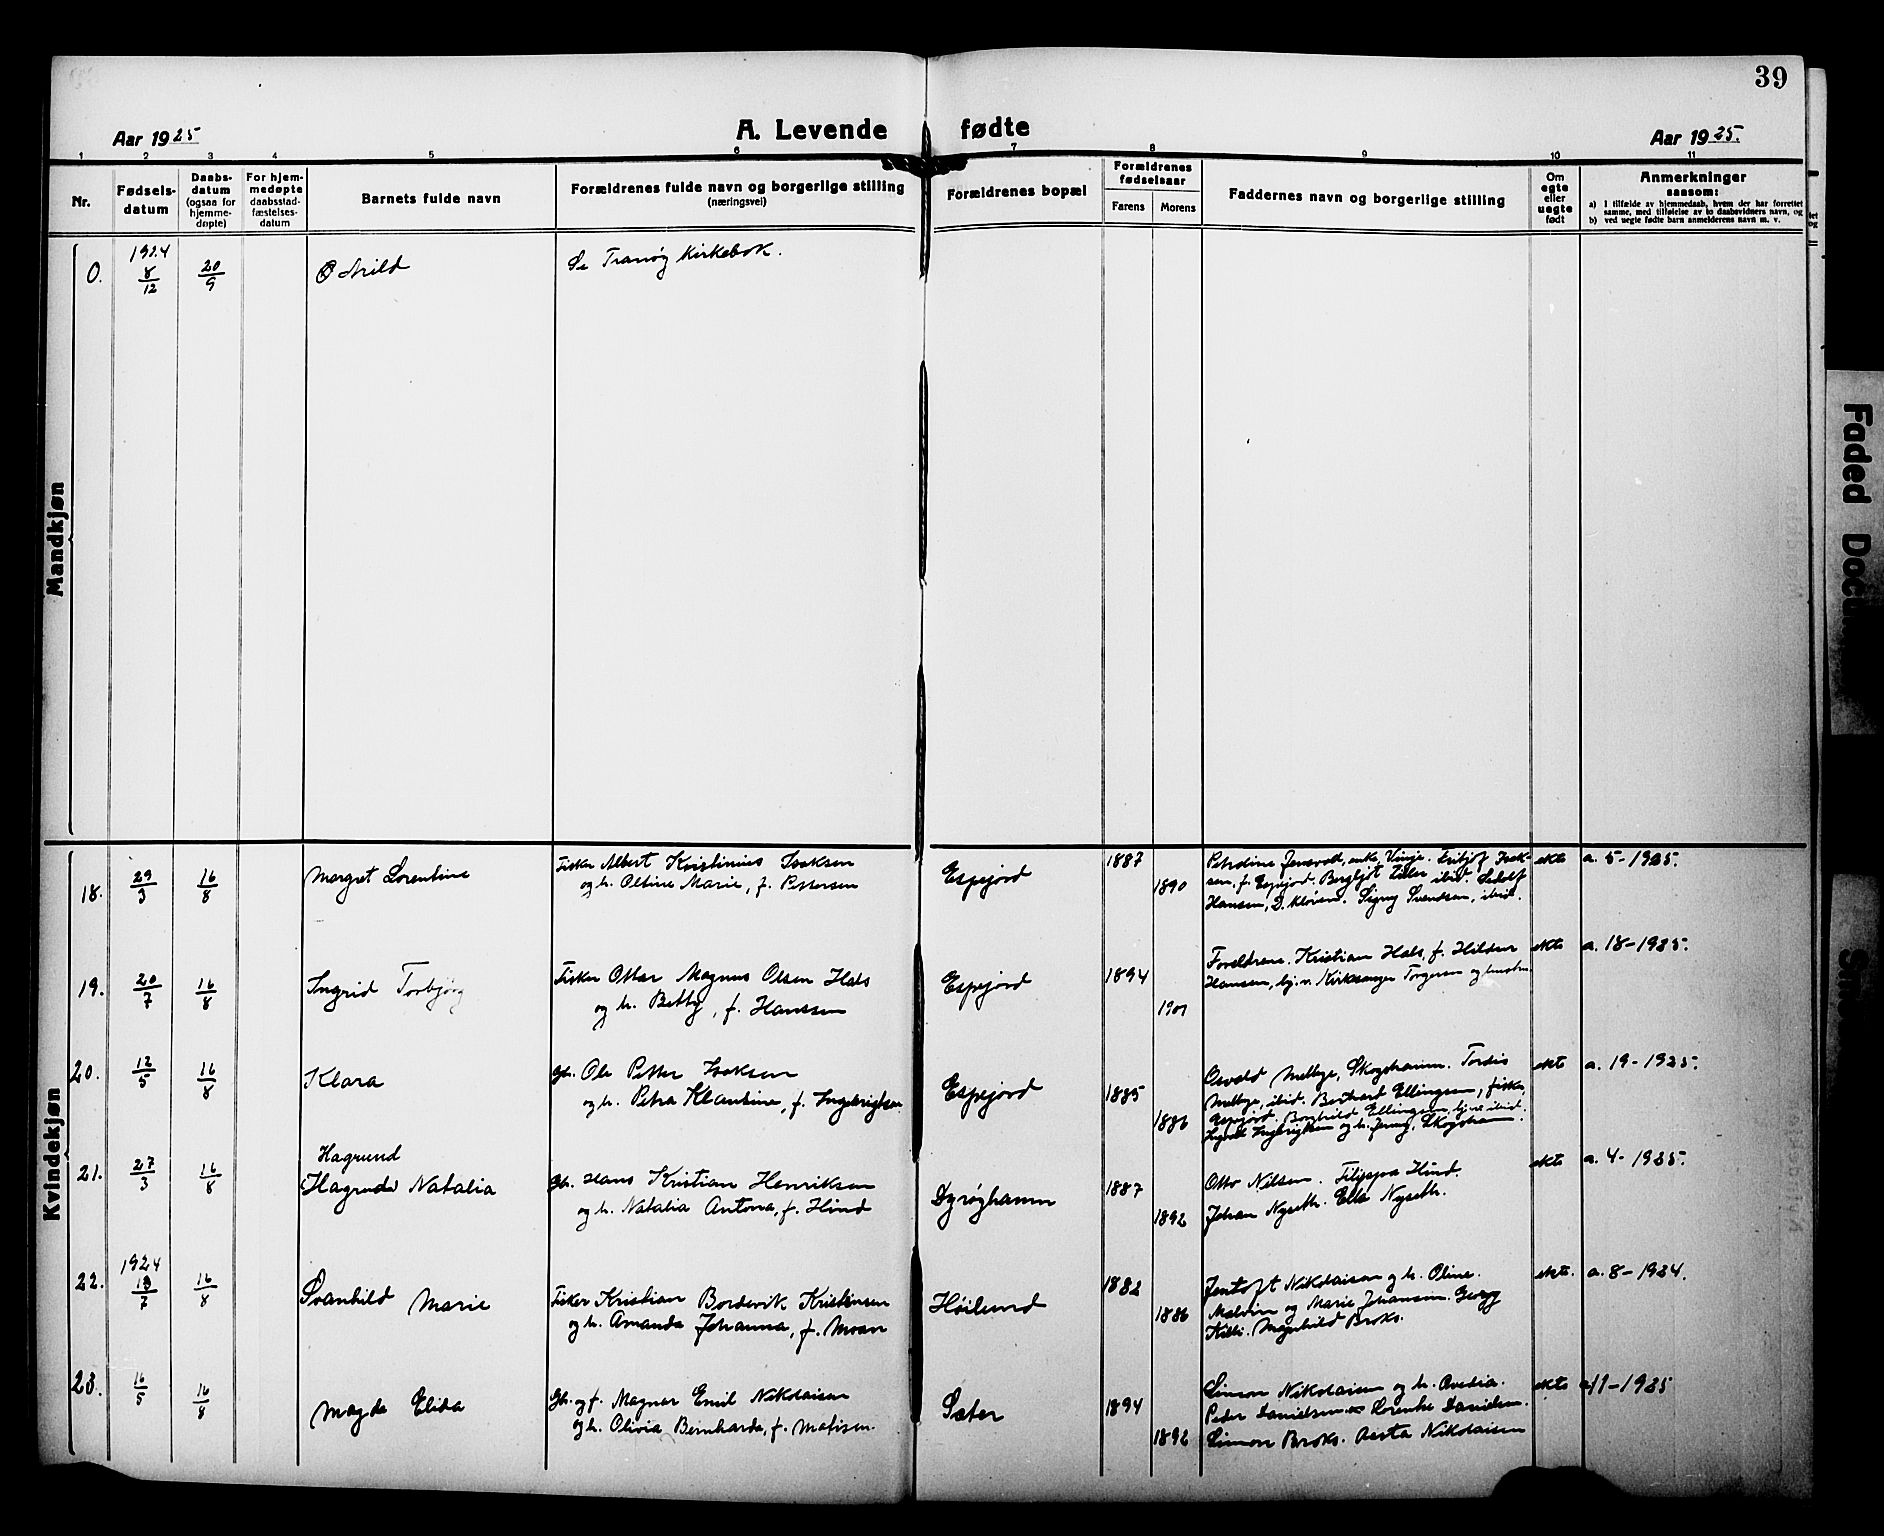 39
Aar 1925
A. Levende fødte
Aar 1925.
1 2 3 4 5 6 7 8 9 10 11
Nr.
Fødsels-
datum
Daabs-
datum
(ogsaa for
hjemme-
døpte)
For hjem-
medøpte
daabsstad-
fæstelses-
datum
Barnets fulde navn
Forældrenes fulde navn og borgerlige stilling
(næringsvei)
Forældrenes bopæl
Forældrenes
fødselsaar
Farens
Morens
Faddernes navn og borgerlige stilling
Om
egte
eller
uegte
født
Anmerkninger
saasom:
a) I tilfælde av hjemmedaab, hvem der har forrettet
samme, med tilføielse av to daabsvidners navn, og
b) ved uegte fødte barn anmelderens navn m. v.
Mandkjøn
0. 1924 8/12 20/9 Arild Se Tranøy kirkebok.
Kvindekjøn
18. 29/3 16/8 Margret Lorentine
Fisker Albert Kristinius Isaksen
og h. Oltine Marie, f. Pettersen
Espejord 1887 1890
Petrdine Jensvoll, enke, Vinje. Fritjof Isak-
sen, f. Espejord. Bergljot ibid.
Hansen, D. Kløven. Signy Svendsen, ibid.
ekte a. 5-1925.
19. 20/7 16/8 Ingrid Torbjørg
Fisker Ottar Magnus Olsen Hals
og h. Betty, f. Hanssen
Espejord 1894 1901
Foreldrene. Kristian Hals, f. Hildur
Hansen, Kirkesanger Torgersen og hustru
ekte a. 18-1925.
20. 12/5 16/8 Klara
Gb. Ole Petter Isaksen
og h. Petra Klantine, f. Ingebrigtsen
Espejord 1885 1886
Osvald Melbye, Skogshamn. Tordis
Melbye, ibid. Bernhard Ellingsen, fisker
Espejord. Borghild Ellingsen, ibid.
Ingebrigtsen og h. Jenny, Skogshamn.
ekte a. 19-1925.
21. 27/3 16/8 Hagrund
(Hagrude) Natalia
Gb. Hans Kristian Henriksen
og h. Natalia Antona, f. Hind
Dyrøyhamn 1887 1892
Otto Nilsen. Filippa Hind.
Johan Nyseth. Ella Nyseth.
ekte a. 4-1925.
22. 1924 13/7 16/8 Svanhild Marie
Fisker Kristian Bordevik Kristensen
og h. Amanda Johanna, f. Moan
Høilund 1882 1886
Jentoft Nikolaisen og h. Oline.
Malvin og Marie Johansen. Georg
Killi. Magnhild Broks.
ekte. a. 8-1924.
23. 16/5 16/8 Magda Elida
Gb. og f. Magnar Emil Nikolaisen
og h. Olivia Bernharda, f. Matisen.
Sæter 1894 1892
Simon Nikolaisen og h. Ovedia.
Peder Danielsen Lorentse Danielsen.
Simon Broks. Asta Nikolaisen
ekte a. 11-1925
Faded Docu